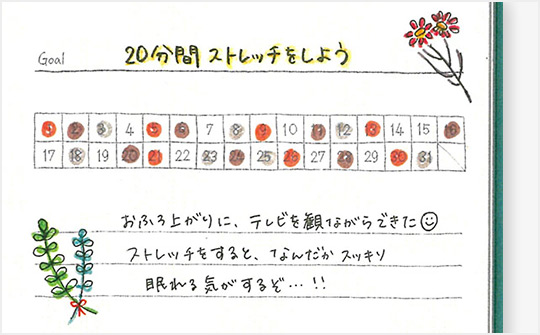 Goal 20分間ストレッチをしよう
1 2 3 4 5 6 7 8 9 10 11 12 13 14 15 16
17 18 19 20 21 22 23 24 25 26 28 29 30 31
おふろ上がりに、テレビを観ながらできた
ストレッチをすると、なんだかスッキリ
眠れる気がするぞ…!!